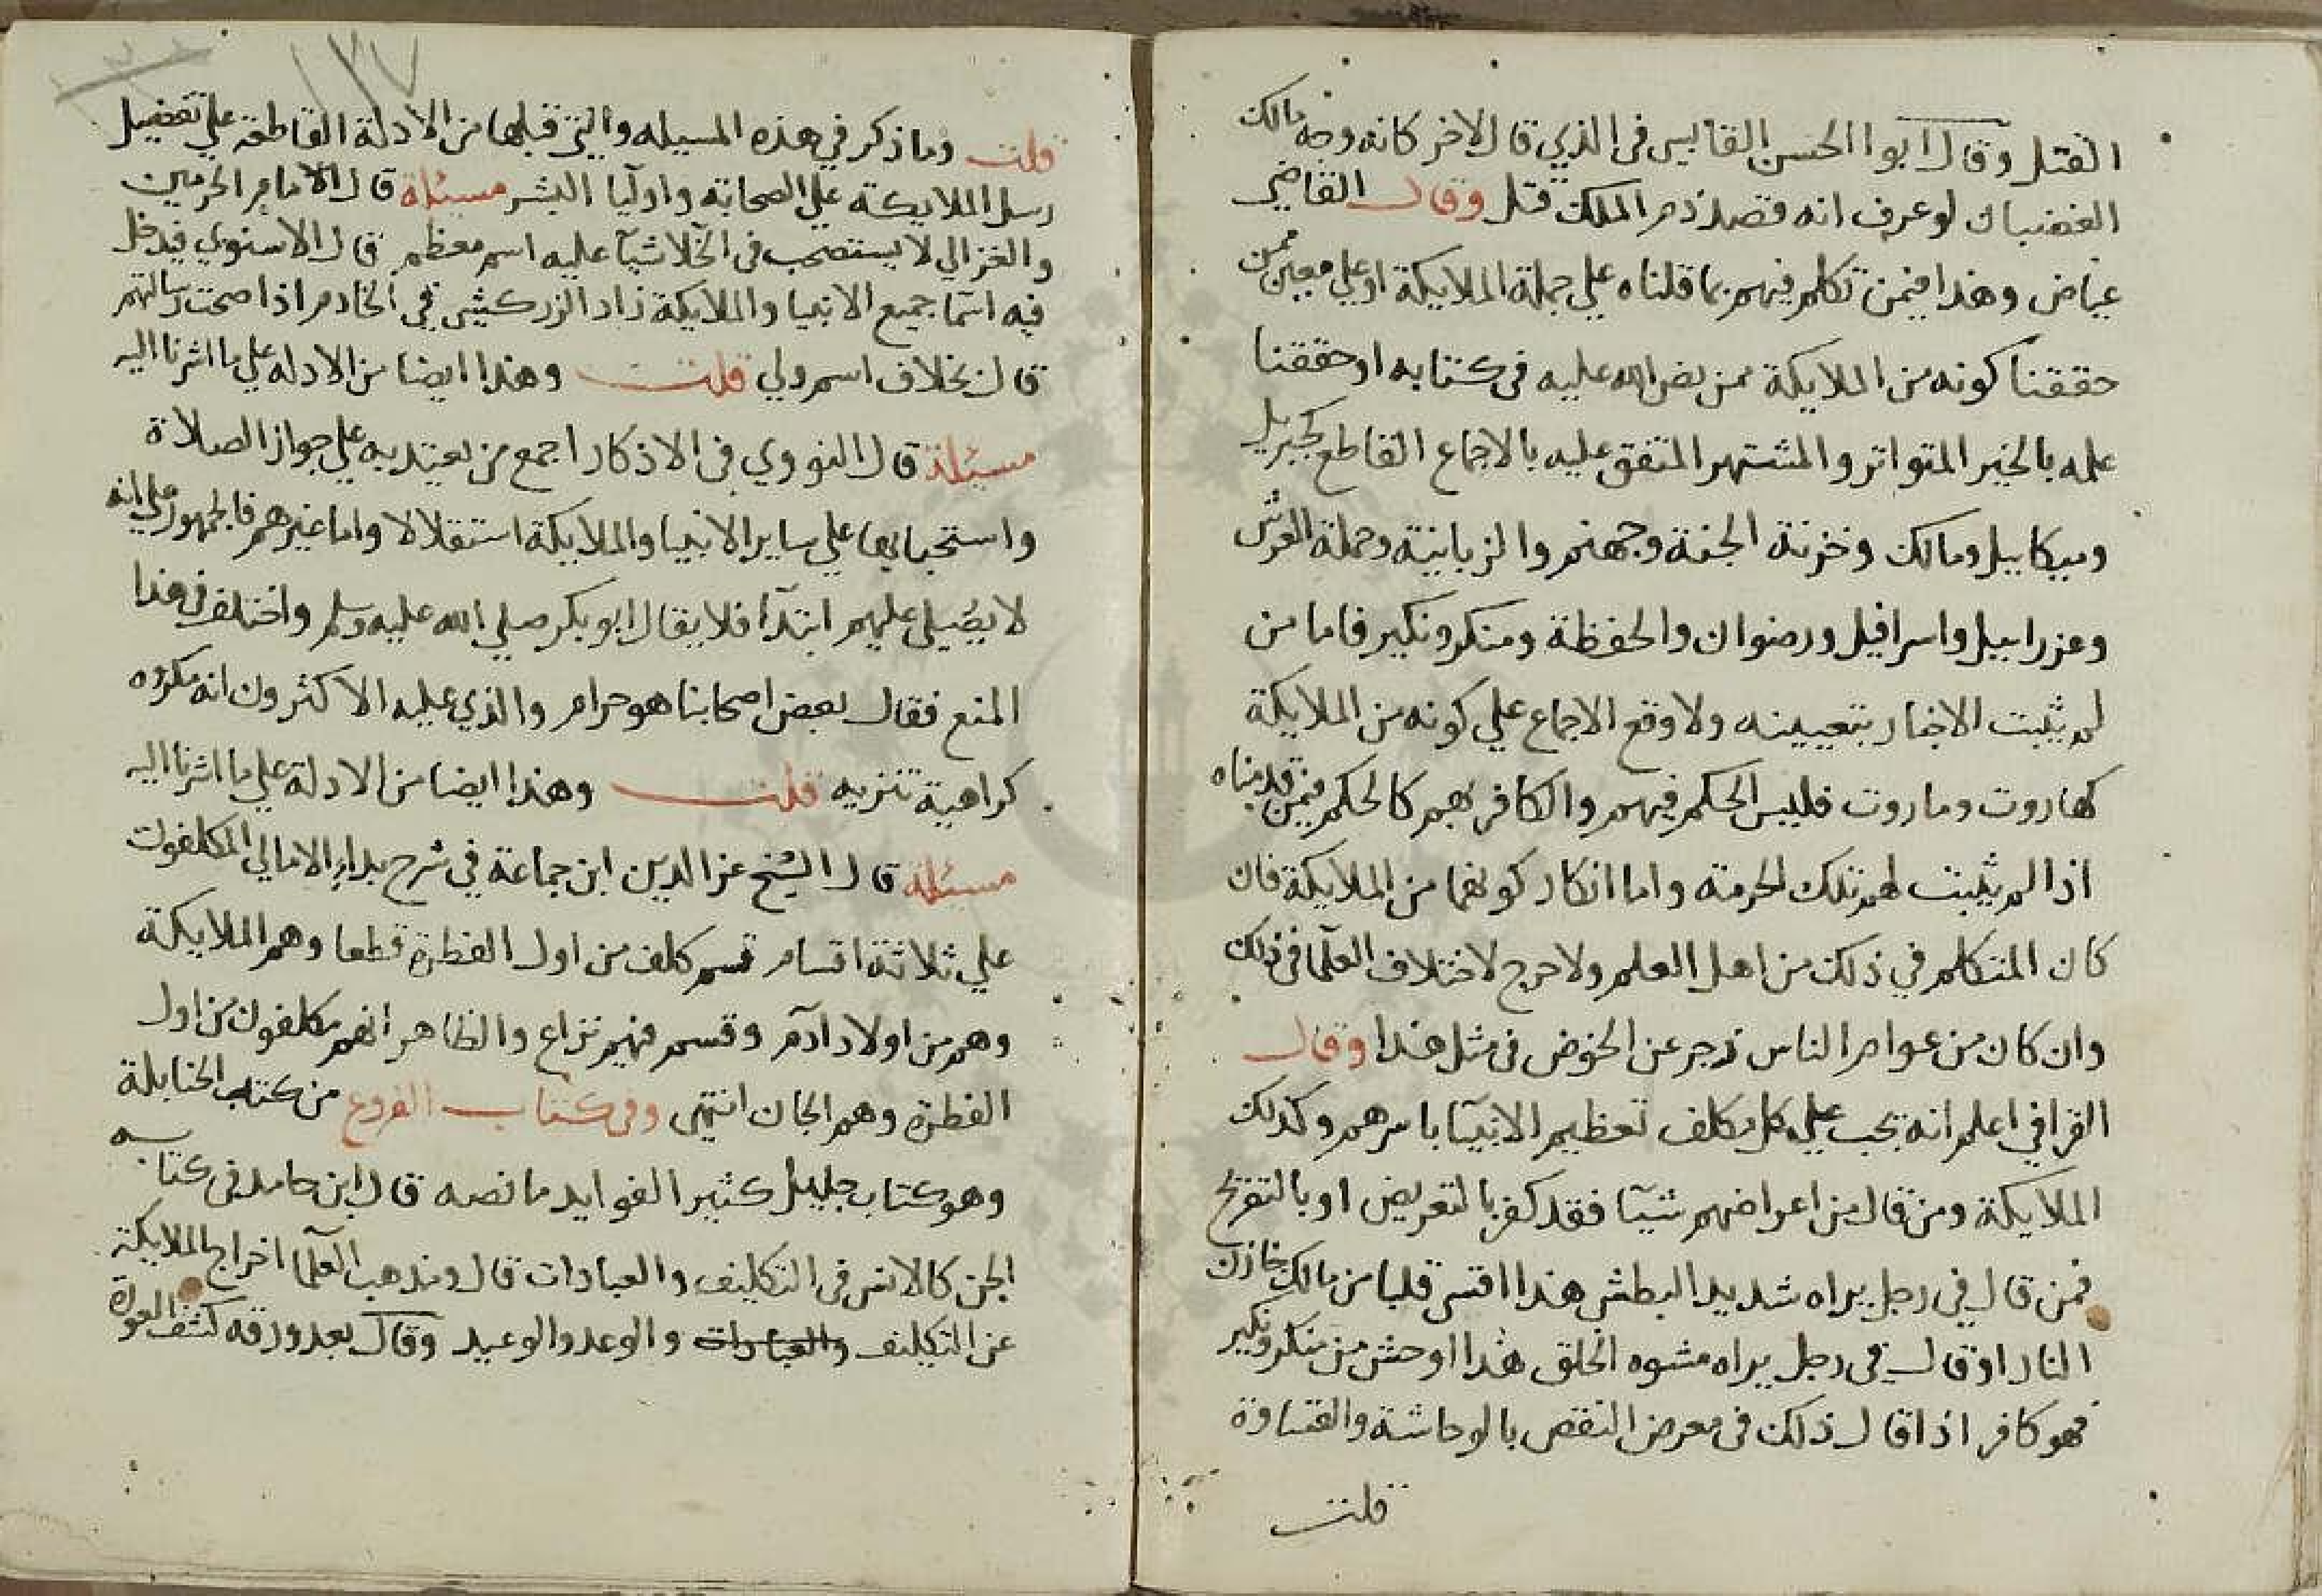 القتل وقال ابوا الحسن القابسي في الذي قال لاخر كانه وجه مالك
الغضبان لو عرف انه قصد ذم الملك قتل وقال القاضي
عياض وهذا فيمن تكلم فيهم بما قلناه علي جملة الملايكة او علي معين ممن
حققنا كونه من الملايكة ممن نص الله عليه في كتابه او حققنا
علمه بالخبر المتواتر والمشتهر المتفق عليه بالاجماع القاطع كجبريل
وميكاييل ومالك وخزنة الجنة وجهنم والزبانية وحملة العرش
وعزراييل واسرافيل ورضوان والحفظة ومنكر ونكير فاما من
لم يثبت الاخبار بتعيينه ولا وقع الاجماع علي كونه من الملايكة
كهاروت وماروت فليس الحكم فيهم والكافر بهم كالحكم فيمن قدمناه
اذا لم يثبت لهم تلك الحرمة واما انكار كونهما من الملايكة فان
كان المتكلم في ذلك من اهل العلم ولا حرج لاختلاف العلما في ذلك
وان كان من عوام الناس زجر عن الخوض في مثل هذا وقال
القرافي اعلم انه يجب علي كل مكلف تعظيم الانبيآ باسرهم وكذلك
الملايكة ومن قال من اعراضهم شيآ فقد كفر بالتعريض او بالتصريح
فمن قال في رجل يراه شديد البطش هذا اقسي قلبا من مالك خازن
النار او قال في رجل يراه مشوه الخلق هذا اوحش من منكر ونكير
فهو كافر اذا قال ذلك في معرض النقص بالوحاشة والقساوة
قلت
١٣٧
قلت وما ذكر في هذه المسيله والتي قبلها من الادلة القاطعة علي تفضيل
رسل الملايكة علي الصحابة واوليا البشر مسئلة قال الامام الحرمين
والغزالي لا يستصحب في الخلا شيآ عليه اسم معظم قال الاسنوي فيدخل
فيه اسما جميع الانبيا والملايكة زاد الزركشي في الخادم اذا صحت رسالتهم
قال بخلاف اسم ولي قلت وهذا ايضا من الادله علي ما اشرنا اليه
مسئلة قال النووي في الاذكار اجمع من يعتد به علي جواز الصلاة
واستحبابها علي ساير الانبيا والملايكة استقلالا واما غيرهم فالجمهور علي انه
لا يصلي عليهم ابتدآ فلا يقال ابو بكر صلي الله عليه وسلم واختلف في هذا
المنع فقال بعض اصحابنا هو حرام والذي عليه الاكثرون انه مكروه
كراهية تنزيه قلت وهذا ايضا من الادلة علي ما اشرنا اليه
مسئلة قال الشيخ عز الدين ابن جماعة في شرح بدا الامالي المكلفون
علي ثلاثة اقسام قسم كلف من اول الفطرة قطعا وهم الملايكة
وهم من اولاد ادم وقسم فيهم نزاع والظاهر انهم مكلفون من اول
الفطرة وهم الجان انتهي وفي كتاب الفروع من كتب الحنابلة
وهو كتاب جليل كثير الفوايد ما نصه قال ابن حامد في كتابه
الجن كالانس في التكليف والعبادات قال ومذهب العلما اخراج الملايكة
عن التكليف والعبادات والوعد والوعيد وقال بعد ورقه كشف العورة